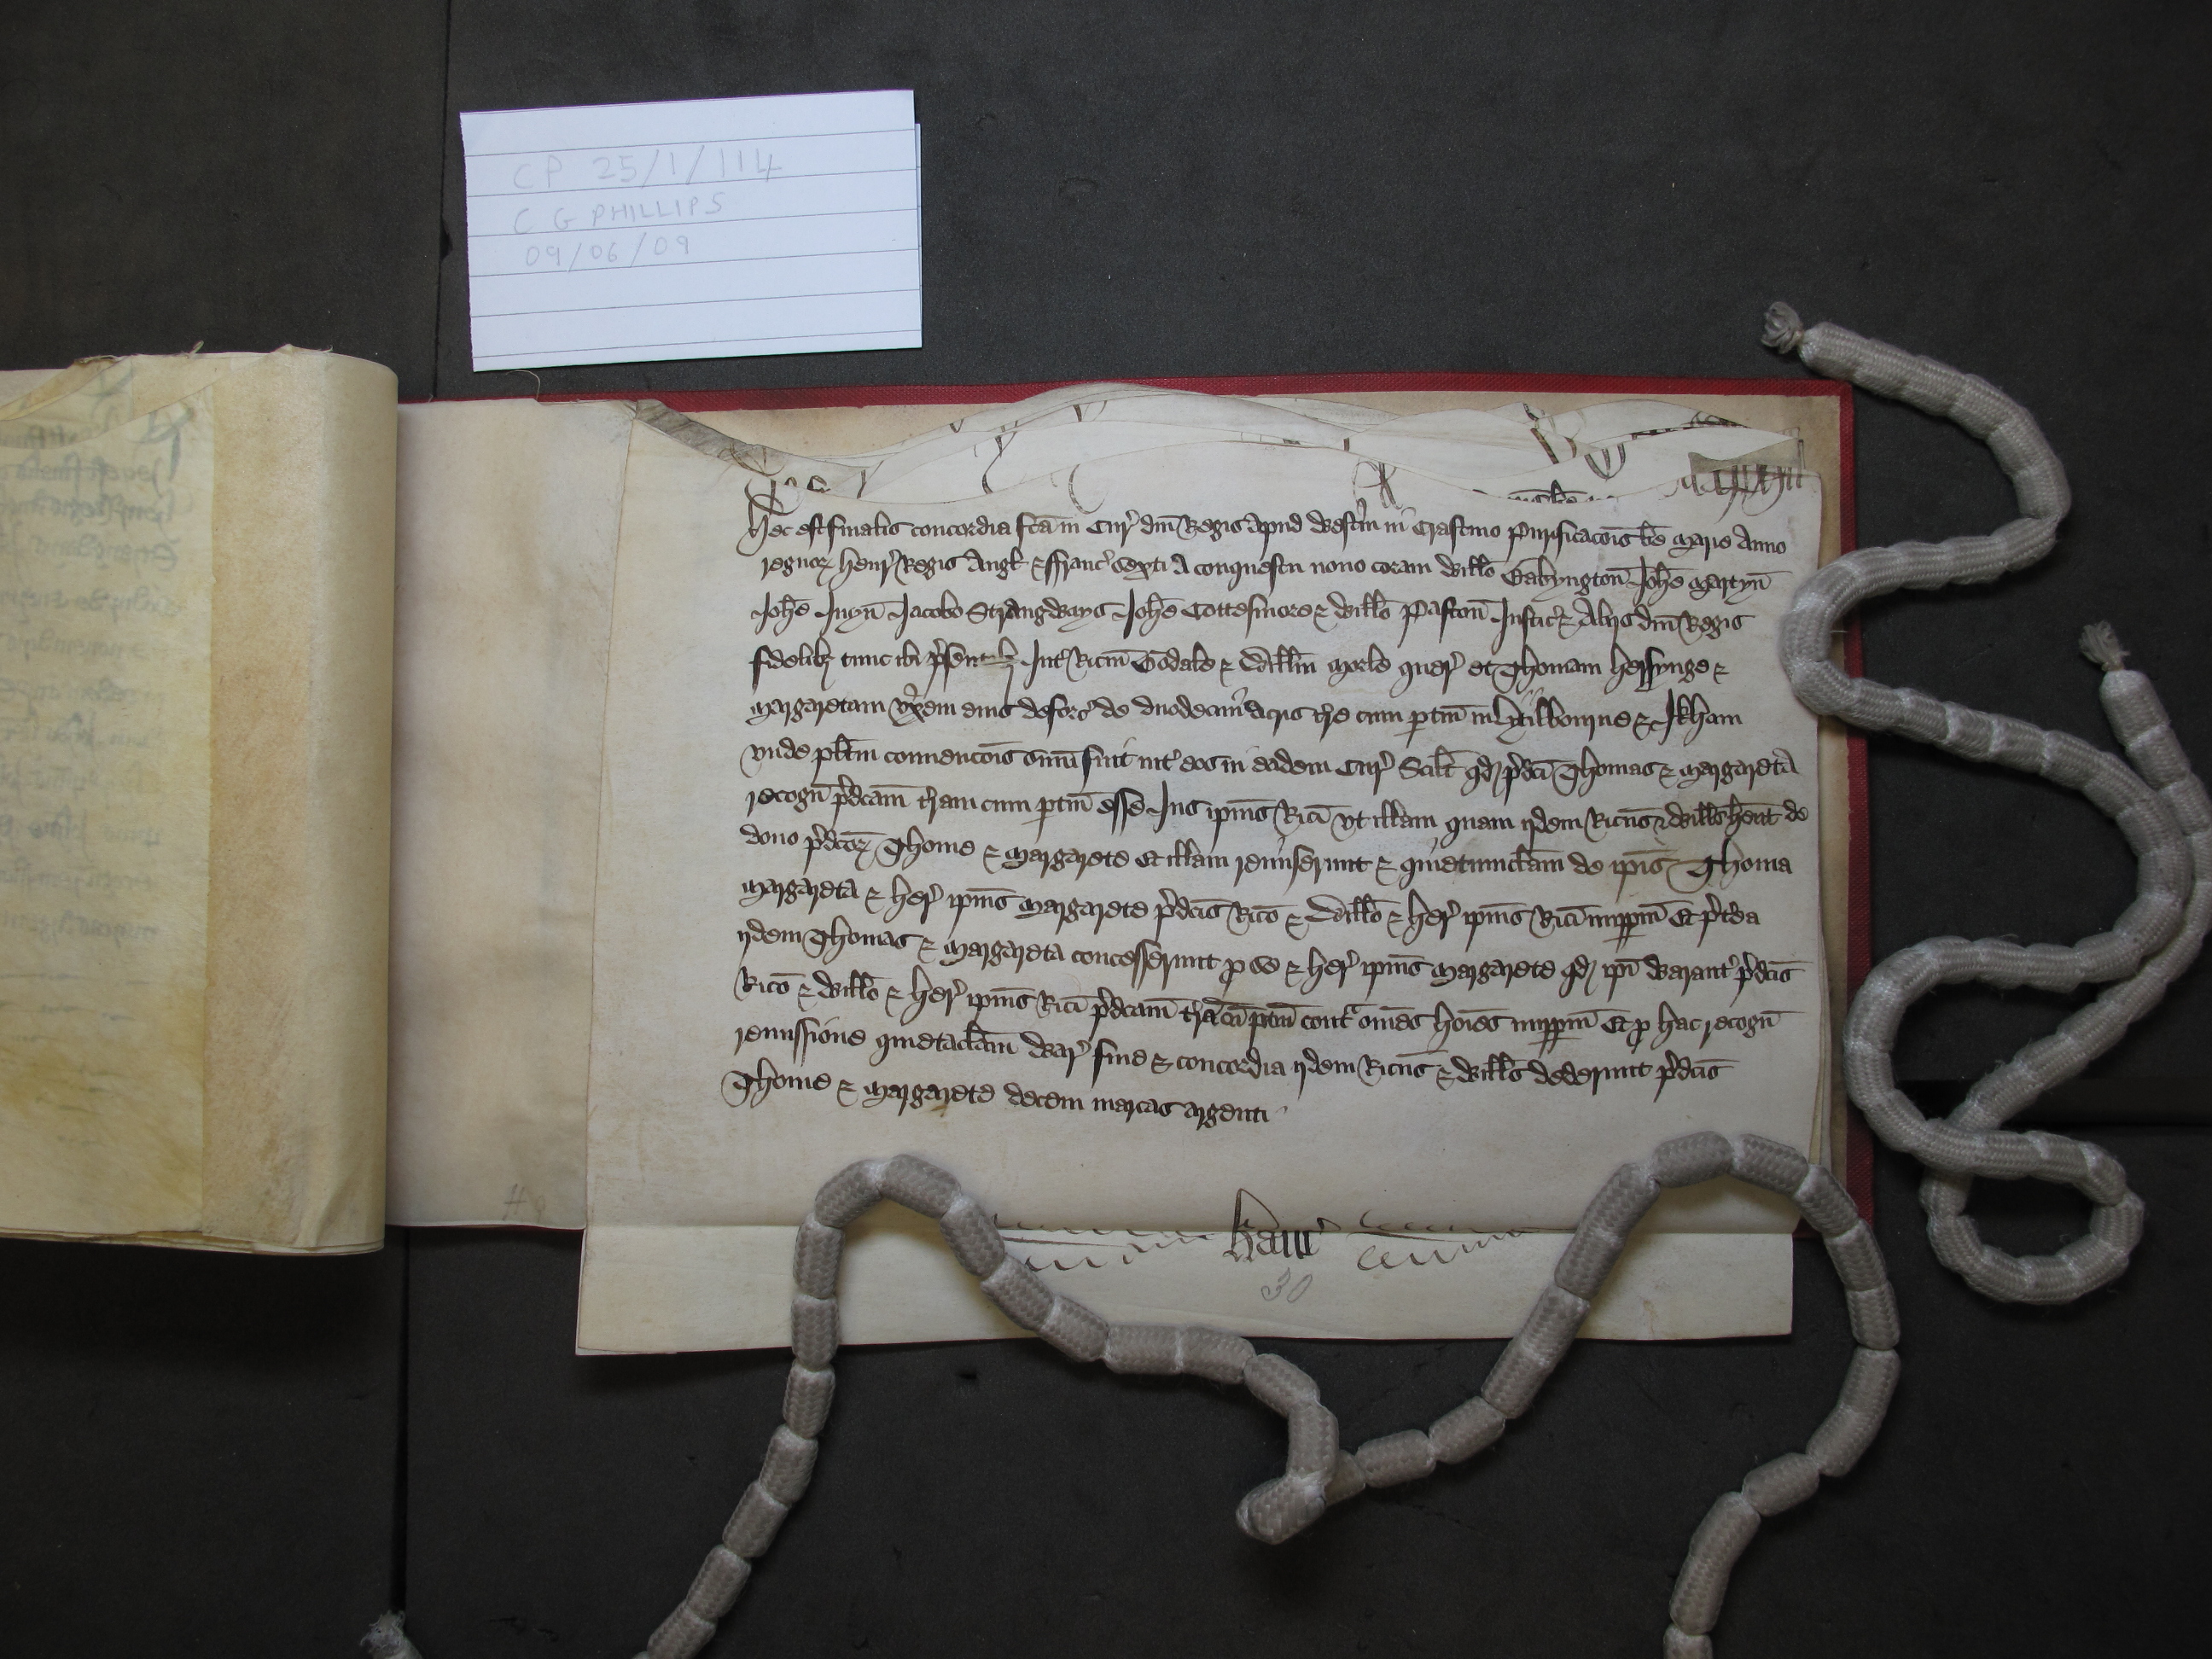 CP 25/1/114
C G PHILLIPS
09/06/09
Hec est finalis concordia fc̄a in Cur̉ dn̄i Regis apud Westm̄ in Crastino Purificac̄ois bē Marie Anno
regnoꝝ Henr̉ Regis Angł & Franc̉ sexti a conquestu nono coram Witło Babyngton̄ Joh̄e Martyn̄
Joh̄e Juyn̄ Jacobo Strangways Joh̄e Cottesmore & Witło Paston̄ Justic̉ & Alijs dn̄i Regis
fidelibꝫ tunc ibi p̉sentibꝫ Int̉ Ricm̄ Godale & Witłm Morle quer̉ et Thomam Hersynge &
Margaretam vx̉em eius deforc̉ de duodecim acris t̉re cum ꝑtin̄ in Lytilbourne & Ikham
vnde plītm conuenc̄ois sum̄ fuit int̉ eos in eadem Cur̉ Scilt̄ qd̛ p̉dc̄i Thomas & Margareta
recogn̄ p̉dc̄am t̉ram cum ꝑtin̄ esse Jus ip̄ius Ric̄i vt illam quam ijdem Ric̄us & Witłs hēnt de
dono p̉dc̄oꝝ Thome & Margarete Et illam remiserunt & quietumclam̄ de ip̄is Thoma
Margareta & her̉ ip̄ius Margarete p̉dc̄is Ric̄o & Witło & her̉ ip̄ius Ric̄i imꝑpm̄ Et p̉t̉ea
ijdem Thomas & Margareta concesserunt ꝑ se & her̉ ip̄ius Margarete qd̛ ip̄i Warant̉ p̉dc̄is
Ric̄o & Witło & her̉ ip̄ius Ric̄i p̉dc̄am t̉rā cū ꝑtin̄ cont̉ om̄es hōies imꝑpm̄ Et ꝑ hac recogn̄
remissione quietaclam̄ War̉ fine & concordia ijdem Ric̄us & Witłs dederunt p̉dc̄is
Thome & Margarete decem marcas argenti
Kanc̉
30